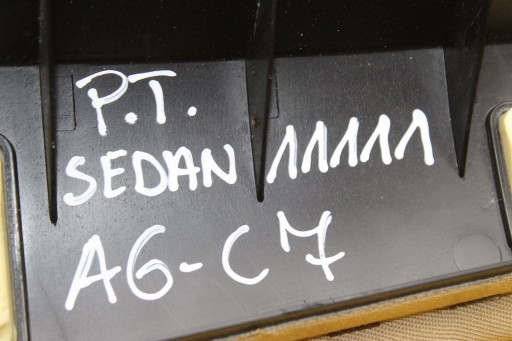 P.T.
SEDAN 11111
A6-C7